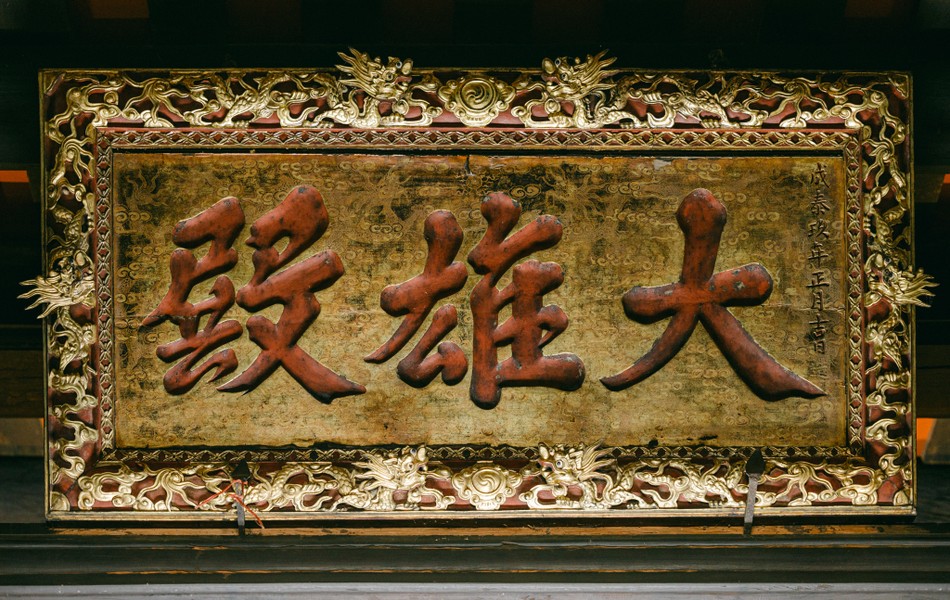 成泰玖年正月吉日
大雄殿